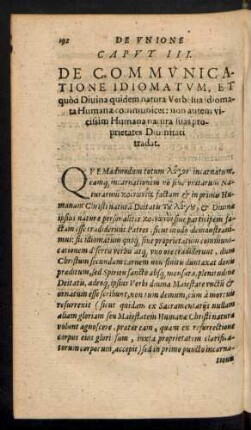 192 DE VNIONE
CAPVT III.
DE COMMVNICA-
TIONE IDIOMATVM, ET
quòd Diuina quidem natura Verbi sua idioma-
ta Humanæ communicet: non autem vi-
cissim Humana natura suas pro-
prietates Diuinitati
tradat.
QVEMadmodum totum λόγον incarnatum,
eamq; incarnationem
Naturarum factam & in primis Hu-
manam Christi natura Deitatis τοῦ λόγου, & Diuinæ
ipsius naturæ personalitèr participem fa-
ctam esse tradiderunt Patres: sicut iamdiu demonstraui-
mus: ità idiomatum quoq; siue proprietatum communi-
cationem disertis verbis atq; non obscurè crediderunt, dum
Christum secundum carnem non finitis quibusdam donis
præditum, sed Spiritu sancto absq; mensura, plenitudine
Deitatis, adeoq; ipsius Verbi diuina Maiestate auctũ &
ornatum esse scribunt, non tum demum, cum à mortuis
resurrexit (sicut quidam ex Sacramentarijs nullam
aliam gloriam seu Maiestatem Humanæ Christi naturæ
volunt agnoscere, præter eam, quam ex resurrectione
corpus eius gloriosum, iuxta proprietatem clarifica-
torum corporum, accepit) sed in primo puncto incarna-
tionis